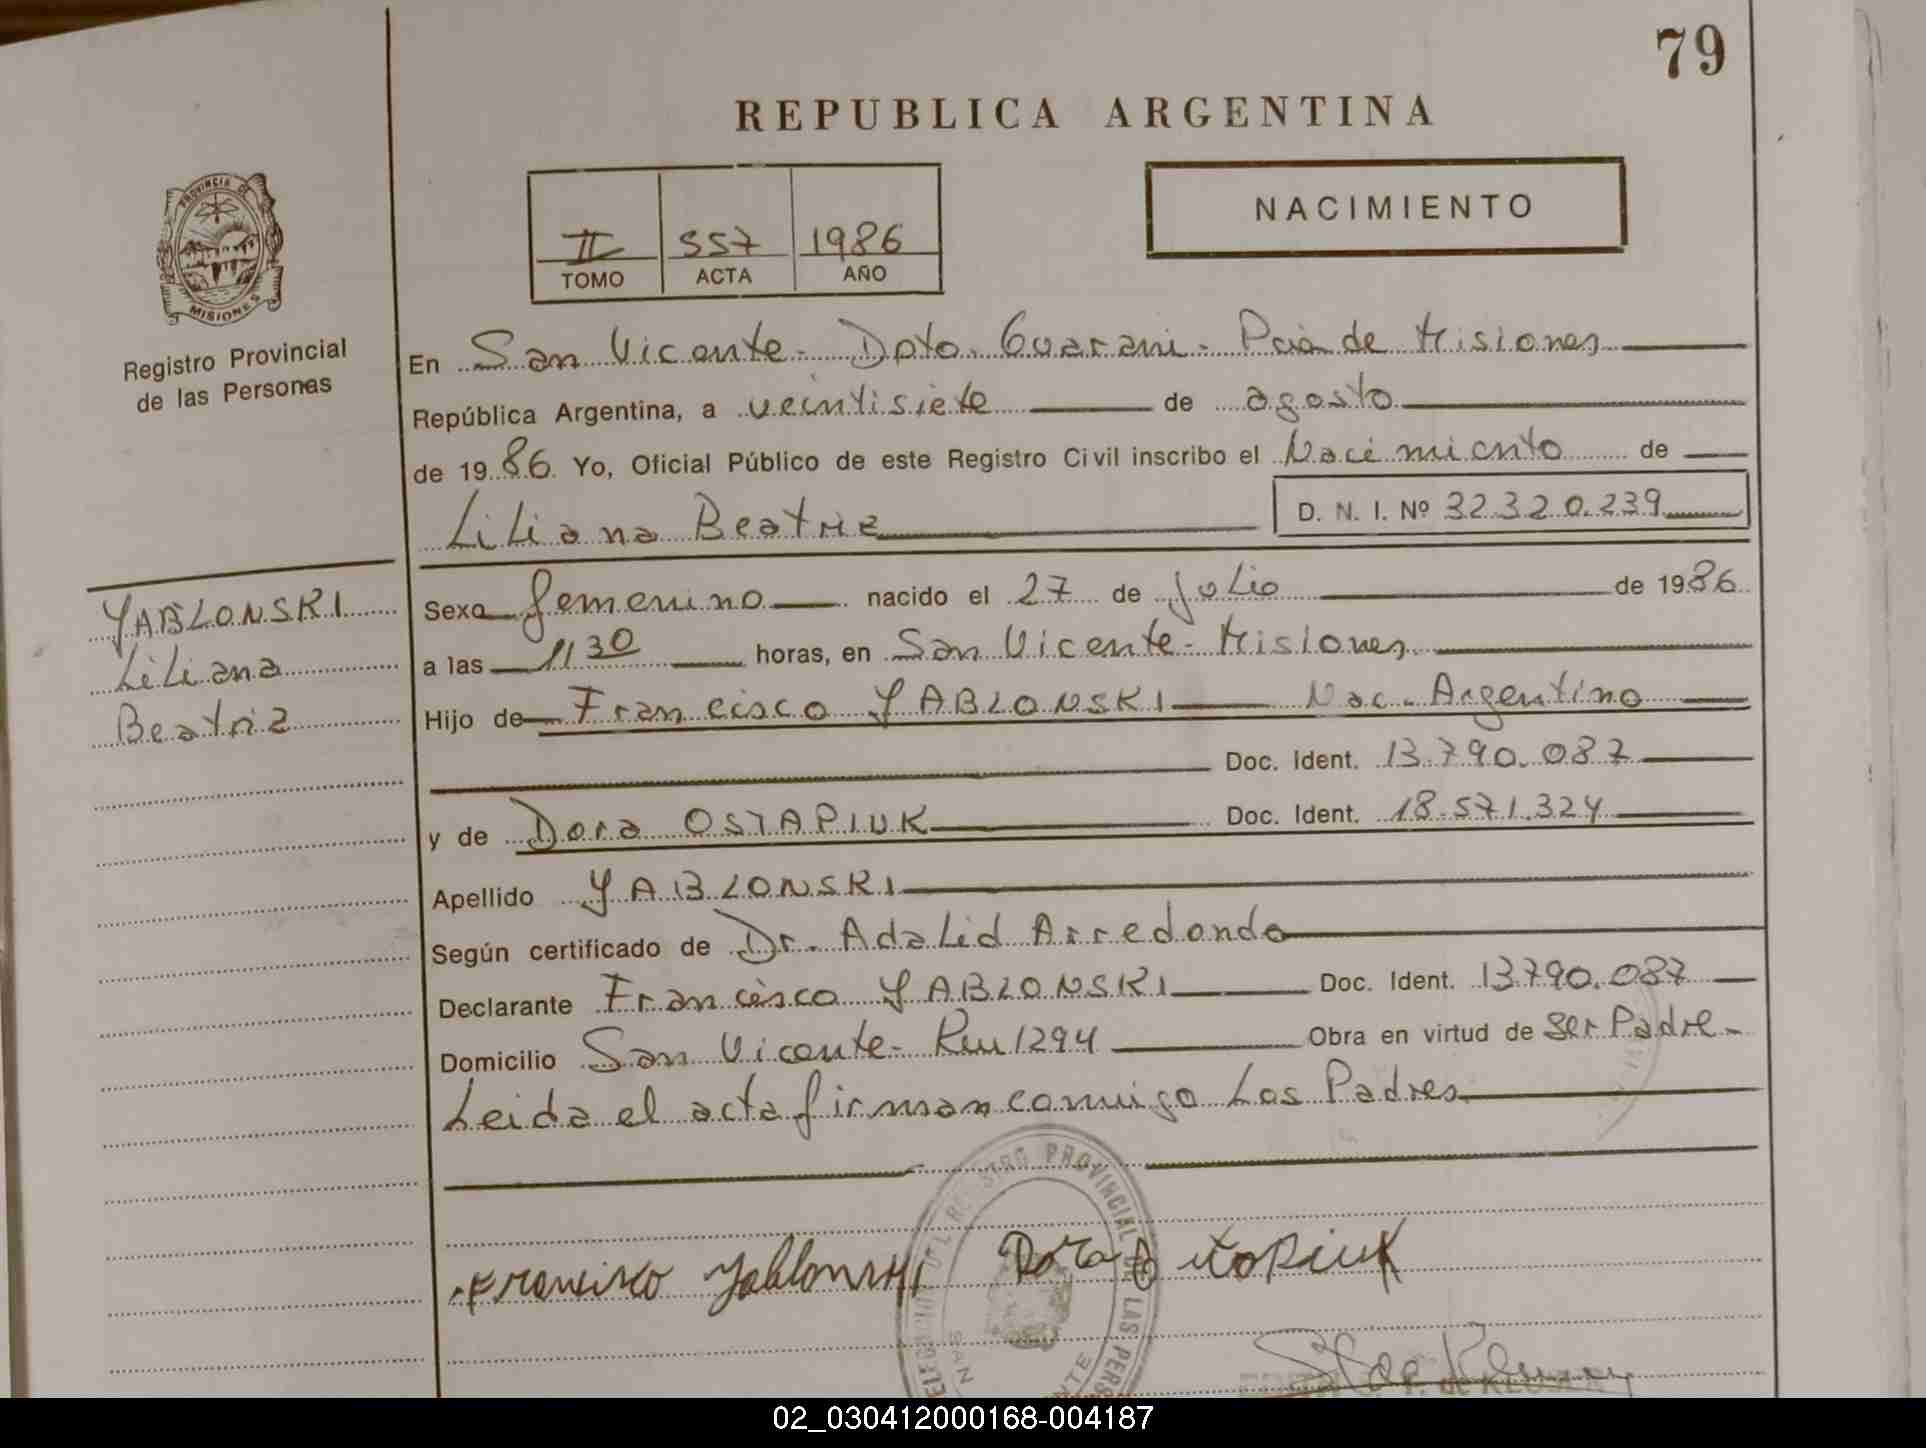 79
REPUBLICA ARGENTINA
NACIMIENTO
II 557 1986
TOMO ACTA AÑO
PROVINCIA DE
MISIONES
Registro Provincial
de las Personas
En San Vicente - Dpto. Guarani - Pcia de Misiones
República Argentina, a veintisiete de agosto
de 1986. Yo, Oficial Público de este Registro Civil inscribo el Nacimiento de
Liliana Beatriz D. N. I. Nº 32.320.239
YABLONSKI
Liliana
Beatriz
Sexo femenino nacido el 27 de julio de 1986
a las 11 30 horas, en San Vicente - Misiones
Hijo de Francisco YABLONSKI Nac. Argentino
Doc. Ident. 13.790.087
y de Dora OSTAPIUK Doc. Ident. 18.571.324
Apellido YABLONSKI
Según certificado de Dr. Adalid Arredondo
Declarante Francisco YABLONSKI Doc. Ident. 13790.087
Domicilio San Vicente - Km 1294 Obra en virtud de ser Padre -
Leida el acta firman conmigo Los Padres
Francisco Yablonski Dora
PROVINCIAL DE LAS PERS
SAN
02_030412000168-004187